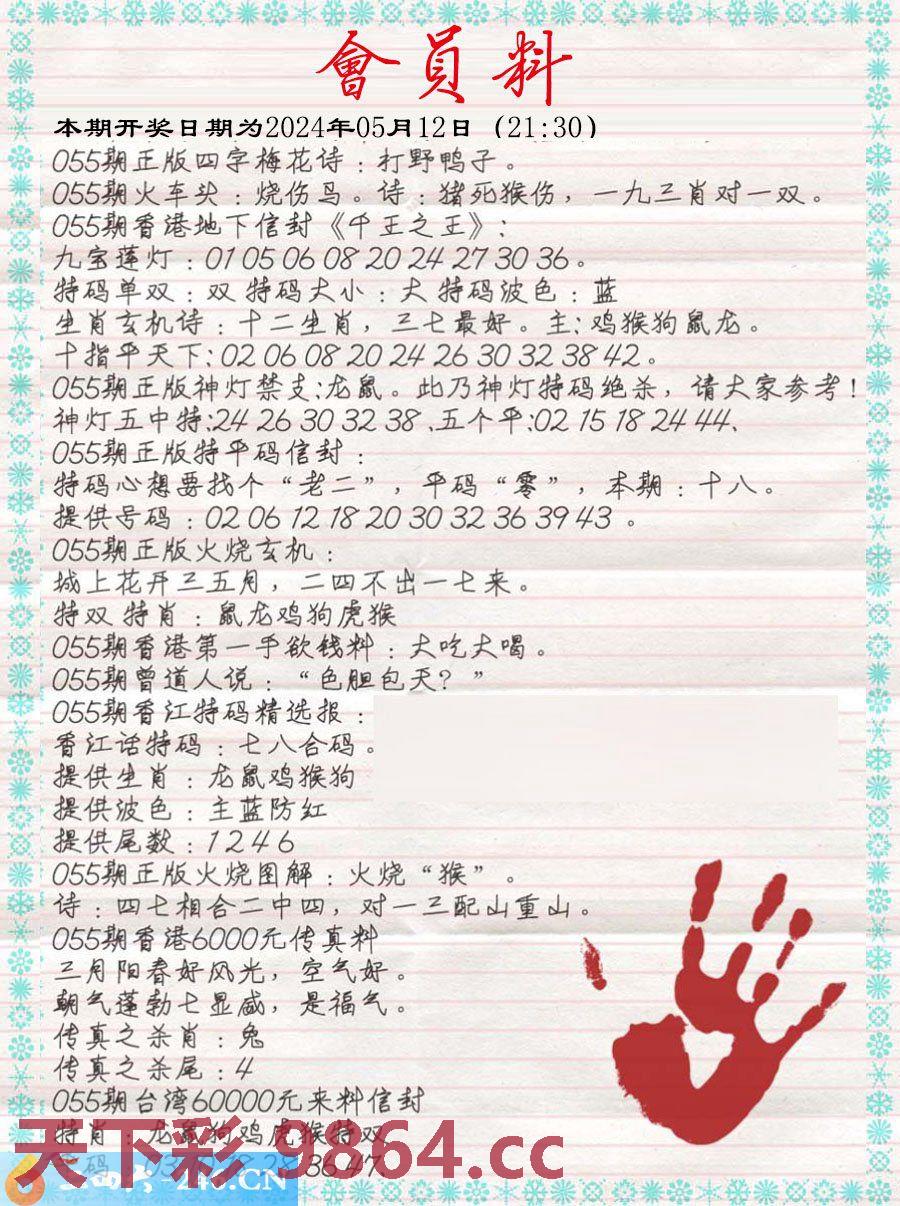 會員料
本期开奖日期为2024年05月12日（21:30）
055期正版四字梅花诗：打野鸭子。
055期火车头：烧伤鸟。诗：猪死猴伤，一九三肖对一双。
055期香港地下信封《千王之王》:
九宝莲灯：01 05 06 08 20 24 27 30 36。
特码单双：双 特码大小：大 特码波色：蓝
生肖玄机诗：十二生肖，三七最好。主: 鸡猴狗鼠龙。
十指平天下: 02 06 08 20 24 26 30 32 38 42。
055期正版神灯禁支:龙鼠。此乃神灯特码绝杀，请大家参考！
神灯五中特:24 26 30 32 38 、五个平:02 15 18 24 44、
055期正版特平码信封：
特码心想要找个“老二”，平码“零”，本期：十八。
提供号码：02 06 12 18 20 30 32 36 39 43 。
055期正版火烧玄机：
城上花开三五月，二四不出一七来。
特双 特肖：鼠龙鸡狗虎猴
055期香港第一手欲钱料：大吃大喝。
055期曾道人说：“色胆包天？”
055期香江特码精选报：
香江话特码：七八合码。
提供生肖：龙鼠鸡猴狗
提供波色：主蓝防红
提供尾数：1 2 4 6
055期正版火烧图解：火烧“猴”。
诗：四七相合二中四，对一三配山重山。
055期香港6000元传真料
三月阳春好风光，空气好。
朝气蓬勃七显感，是福气。
传真之杀肖：兔
传真之杀尾：4
055期台湾60000元来料信封
特肖：龙鼠狗鸡虎猴特双
天下彩 9864.cc
36 47、
.CN